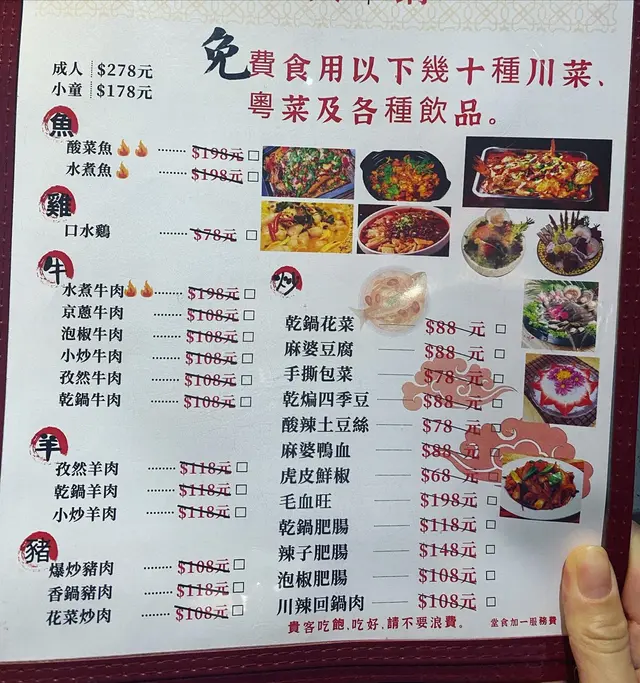 成人 $278元
小童 $178元
免費食用以下幾十種川菜、
粵菜及各種飲品。
魚
酸菜魚 ······· $198元 □
水煮魚 ······· $198元 □
雞
口水鷄 ······· $78元 □
牛
水煮牛肉 ······ $198元 □
京蔥牛肉 ······ $108元 □
泡椒牛肉 ······ $108元 □
小炒牛肉 ······ $108元 □
孜然牛肉 ······ $108元 □
乾鍋牛肉 ······ $108元 □
羊
孜然羊肉 ······· $118元 □
乾鍋羊肉 ······· $118元 □
小炒羊肉 ······· $118元 □
豬
爆炒豬肉 ······ $108元 □
香鍋豬肉 ······ $118元 □
花菜炒肉 ······ $108元 □
炒
乾鍋花菜 —— $88元 □
麻婆豆腐 —— $88元 □
手撕包菜 —— $78元 □
乾煸四季豆 —— $88元 □
酸辣土豆絲 —— $78元 □
麻婆鴨血 —— $88元 □
虎皮鮮椒 —— $68元 □
毛血旺 —— $198元 □
乾鍋肥腸 —— $118元 □
辣子肥腸 —— $148元 □
泡椒肥腸 —— $108元 □
川辣回鍋肉 —— $108元 □
貴客吃飽,吃好,請不要浪費。
當食加一服務費